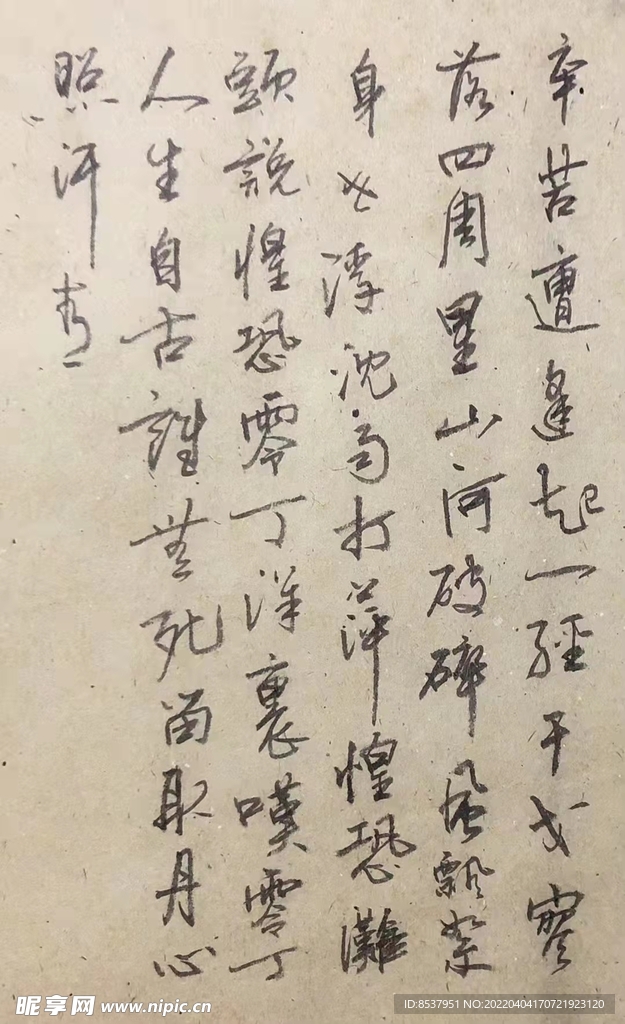 辛苦遭逢起一經干戈寥
落四周星山河破碎風飄絮
身世浮沈雨打萍惶恐灘
頭說惶恐零丁洋裏嘆零丁
人生自古誰無死留取丹心
照汗青
昵享网 www.nipic.cn
ID:8537951 NO:20220404170721923120